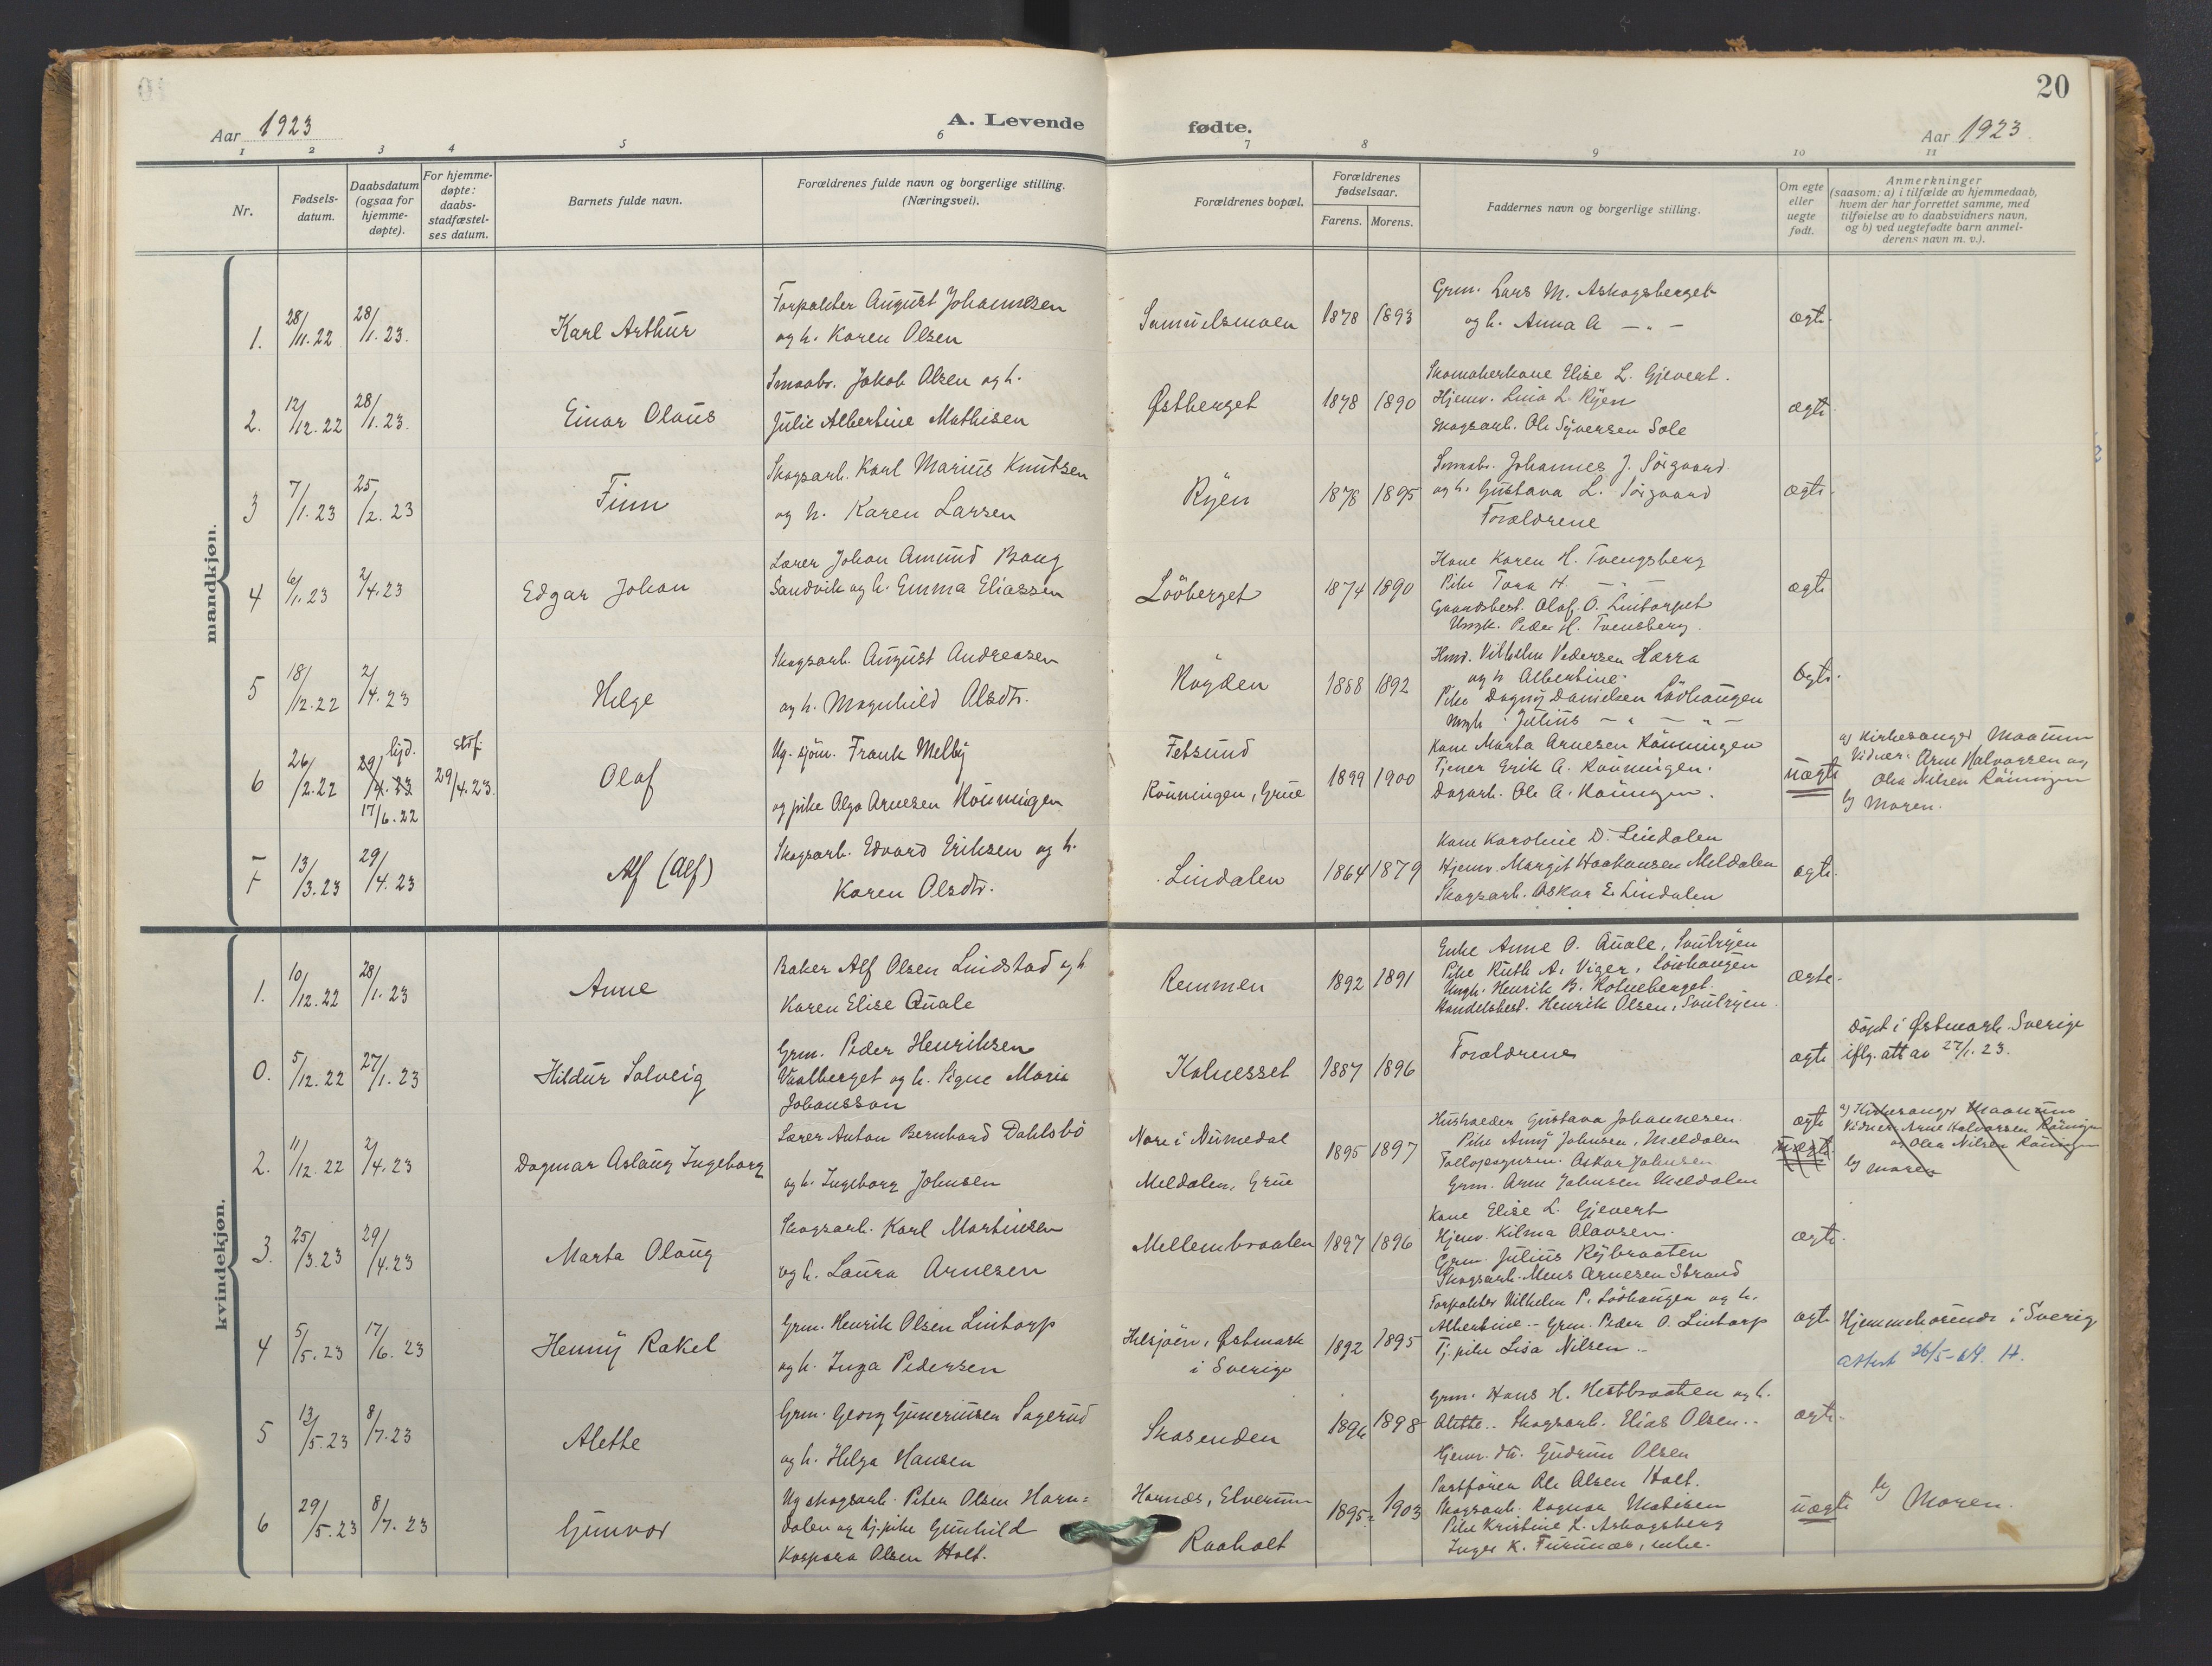 20
Aar 1923
A. Levende
fødte.
Aar 1923.
1 2 3 4 5 6 7 8 9 10 11
Nr.
Fødsels-
datum.
Daabsdatum
(ogsaa for
hjemme-
døpte).
For hjemme-
døpte:
daabs-
stadfæstel-
ses datum.
Barnets fulde navn.
Forældrenes fulde navn og borgerlige stilling.
(Næringsvei).
Forældrenes bopæl.
Forældrenes
fødselsaar.
Farens. Morens.
Faddernes navn og borgerlige stilling.
Om egte
eller
uegte
født.
Anmerkninger
(saasom: a) i tilfælde av hjemmedaab,
hvem der har forrettet samme, med
tilføielse av to daabsvidners navn,
og b) ved uegtefødte barn anmel-
derens navn m. v.).
mandkjøn.
1. 28/11.22 28/1.23. Karl Arthur
Forpakter August Johannesen
og h. Karen Olsen
Samuelsmoen 1878 1893
Grm. Lars M. Askogsberget
og h. Anna A — „ —
ægte.
2. 12/12.22 28/1.23. Einar Olaus
Smaabr. Jakob Olsen og h.
Julie Albertine Mathisen
Østberget 1878 1890
Skomakerkone Elise L. Gjevert.
Hjemv. Lina L. Ryen
Skogsarb. Ole Syversen Sole
ægte.
3 7/1.23 25/2.23 Finn
Skogsarb. Karl Marius Knutsen
og h. Karen Larsen
Ryen 1878 1895
Smabr. Johannes J. Sörgaard
og h. Gustava L. Sörgaard
Forældrene
ægte.
4 6/1.23 2/4.23 Edgar Johan
Lærer Johan Amund Bang
Sandvik og h. Emma Eliassen
Lövberget 1874 1890
Kone Karen H. Tvengsberg
Pike Tora H. — „ —
Gaardsbest. Olaf O. Lintorpet
Ungk. Peder H. Tvensberg.
ægte
5 18/12.22 2/4.23 Helge
Skogsarb. August Andreasen
og h. Magnhild Olsdtr.
Rögden 1888 1892
Hmd. Vilhelm Pedersen Harra
og h Albertine.
Pike Dagny Danielsen Lövhaugen
Ungk. Julius — „ — „ —
ægte.
6 26/2.22 hjd. 29/4.23 17/6.22 stdf. 29/4.23. Olaf
Ug. sjöm. Frank Melby
og pike Olga Arnesen Rönningen
Fetsund
Rönningen, Grue 1899 1900
Kone Marta Arnesen Rönningen
Tjener Erik A. Rönningen.
Dagarb. Ole A. Rönningen.
uægte
a) Kirkesanger Maanum
Vidner: Arne Halvorsen og
Olea Nilsen Rönningen
b) Moren.
7 13/3.23 29/4.23 Alf (Alf)
Skogsarb. Edvard Eriksen og h.
Karen Olsdtr.
Lindalen 1864 1879
Kone Karoline D. Lindalen
Hjemv. Margit Haakonsen Meldalen
Skogsarb. Oskar E. Lindalen
ægte.
kvindekjøn.
1. 10/12.22 28/1.23 Anne
Baker Alf Olsen Lindstad og h
Karen Elise Quale
Remmen 1892 1891
Enke Anne O. Quale, Svulryen
Pike Ruth A. Viger, Lövhaugen
Ungk. Henrik B. Kolneberget.
Handelsbest. Henrik Olsen, Svulryen.
ægte.
0. 5/12.22 27/1.23 Hildur Solveig
Grm. Peder Henriksen
Vaalberget og h. Signe Maria
Johansson
Kolnesset 1887 1896
Forældrene
ægte
Döpt i Østmark. Sverige
iflg. att av 27/1.23.
2. 11/12.22 2/4.23 Dagmar Aslaug Ingeborg
Lærer Anton Bernhard Dahlsbö
og h. Ingeborg Johnsen
Nore i Numedal
Meldalen, Grue 1895 1897
Husholder Gustava Johannesen.
Pike Anny Johnsen, Meldalen
Tollopsynsm. Oskar Johnsen
Grm. Arne Johnsen Meldalen
ægte
uægte.
a) Kirkesanger Maanum
Vidner: Arne Halvorsen Rönningen
og Olea Nilsen Rönningen
b) moren
3. 25/3.23 29/4.23 Marta Olaug
Skogsarb. Karl Martinsen
og h. Laura Arnesen
Mellembraaten 1897 1896
Kone Elise L. Gjevert
Hjemv. Kilma Olavsen.
Grm. Julius Rybraaten
Skogsarb. Mens Arnesen Strand
ægte.
4 5/5.23 17/6.23 Henny Rakel
Grm. Henrik Olsen Lintorp
og h. Inga Pedersen
Helsjöen, Østmark
i Sverige 1892 1895
Forpakter Vilhelm P. Lövhaugen og h.
Albertine.- Grm. Peder O. Lintorp
Tj. pike Lisa Nilsen..
ægte
Hjemmehörende i Sverig
attest 26/5-64. H.
5 13/5.23 8/7.23 Alette
Grm. Georg Gunneriusen Sagerud
og h. Helga Hansen
Skasenden 1896 1898
Grm. Hans H. Hestbraaten og h.
Alette.. Skogsarb. Elias Olsen..
Hjemv. dtr. Gudrun Olsen
ægte.
6 29/5.23 8/7.23 Gunvor
Ug skogsarb. Peter Olsen Horn=
dalen og tj. pike Gunhild
Kaspara Olsen Holt.
Hornæs, Elverum
Raaholt 1895 1903
Postförer Ole Olsen Holt.
Skogsarb. Ragnar Mobisen
Pike Kristine L. Askogsberg
Inger K. Furunæs, enke.
uægte
b) Moren.